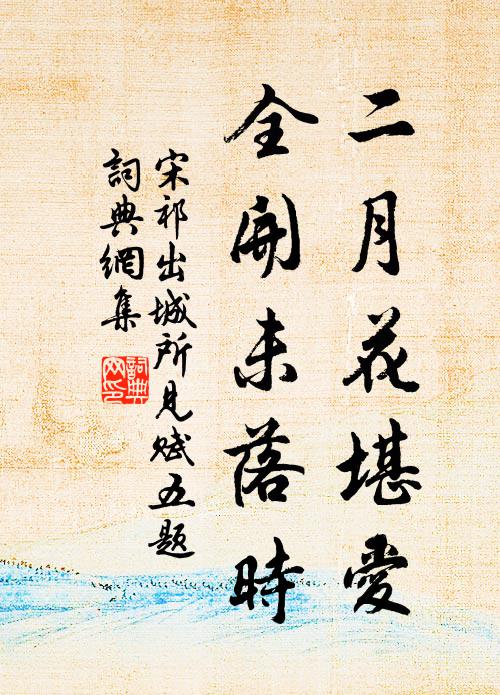 二月花堪愛
全開未落時
宋祁出城所見賦五題
詞典網集
詞典
网印